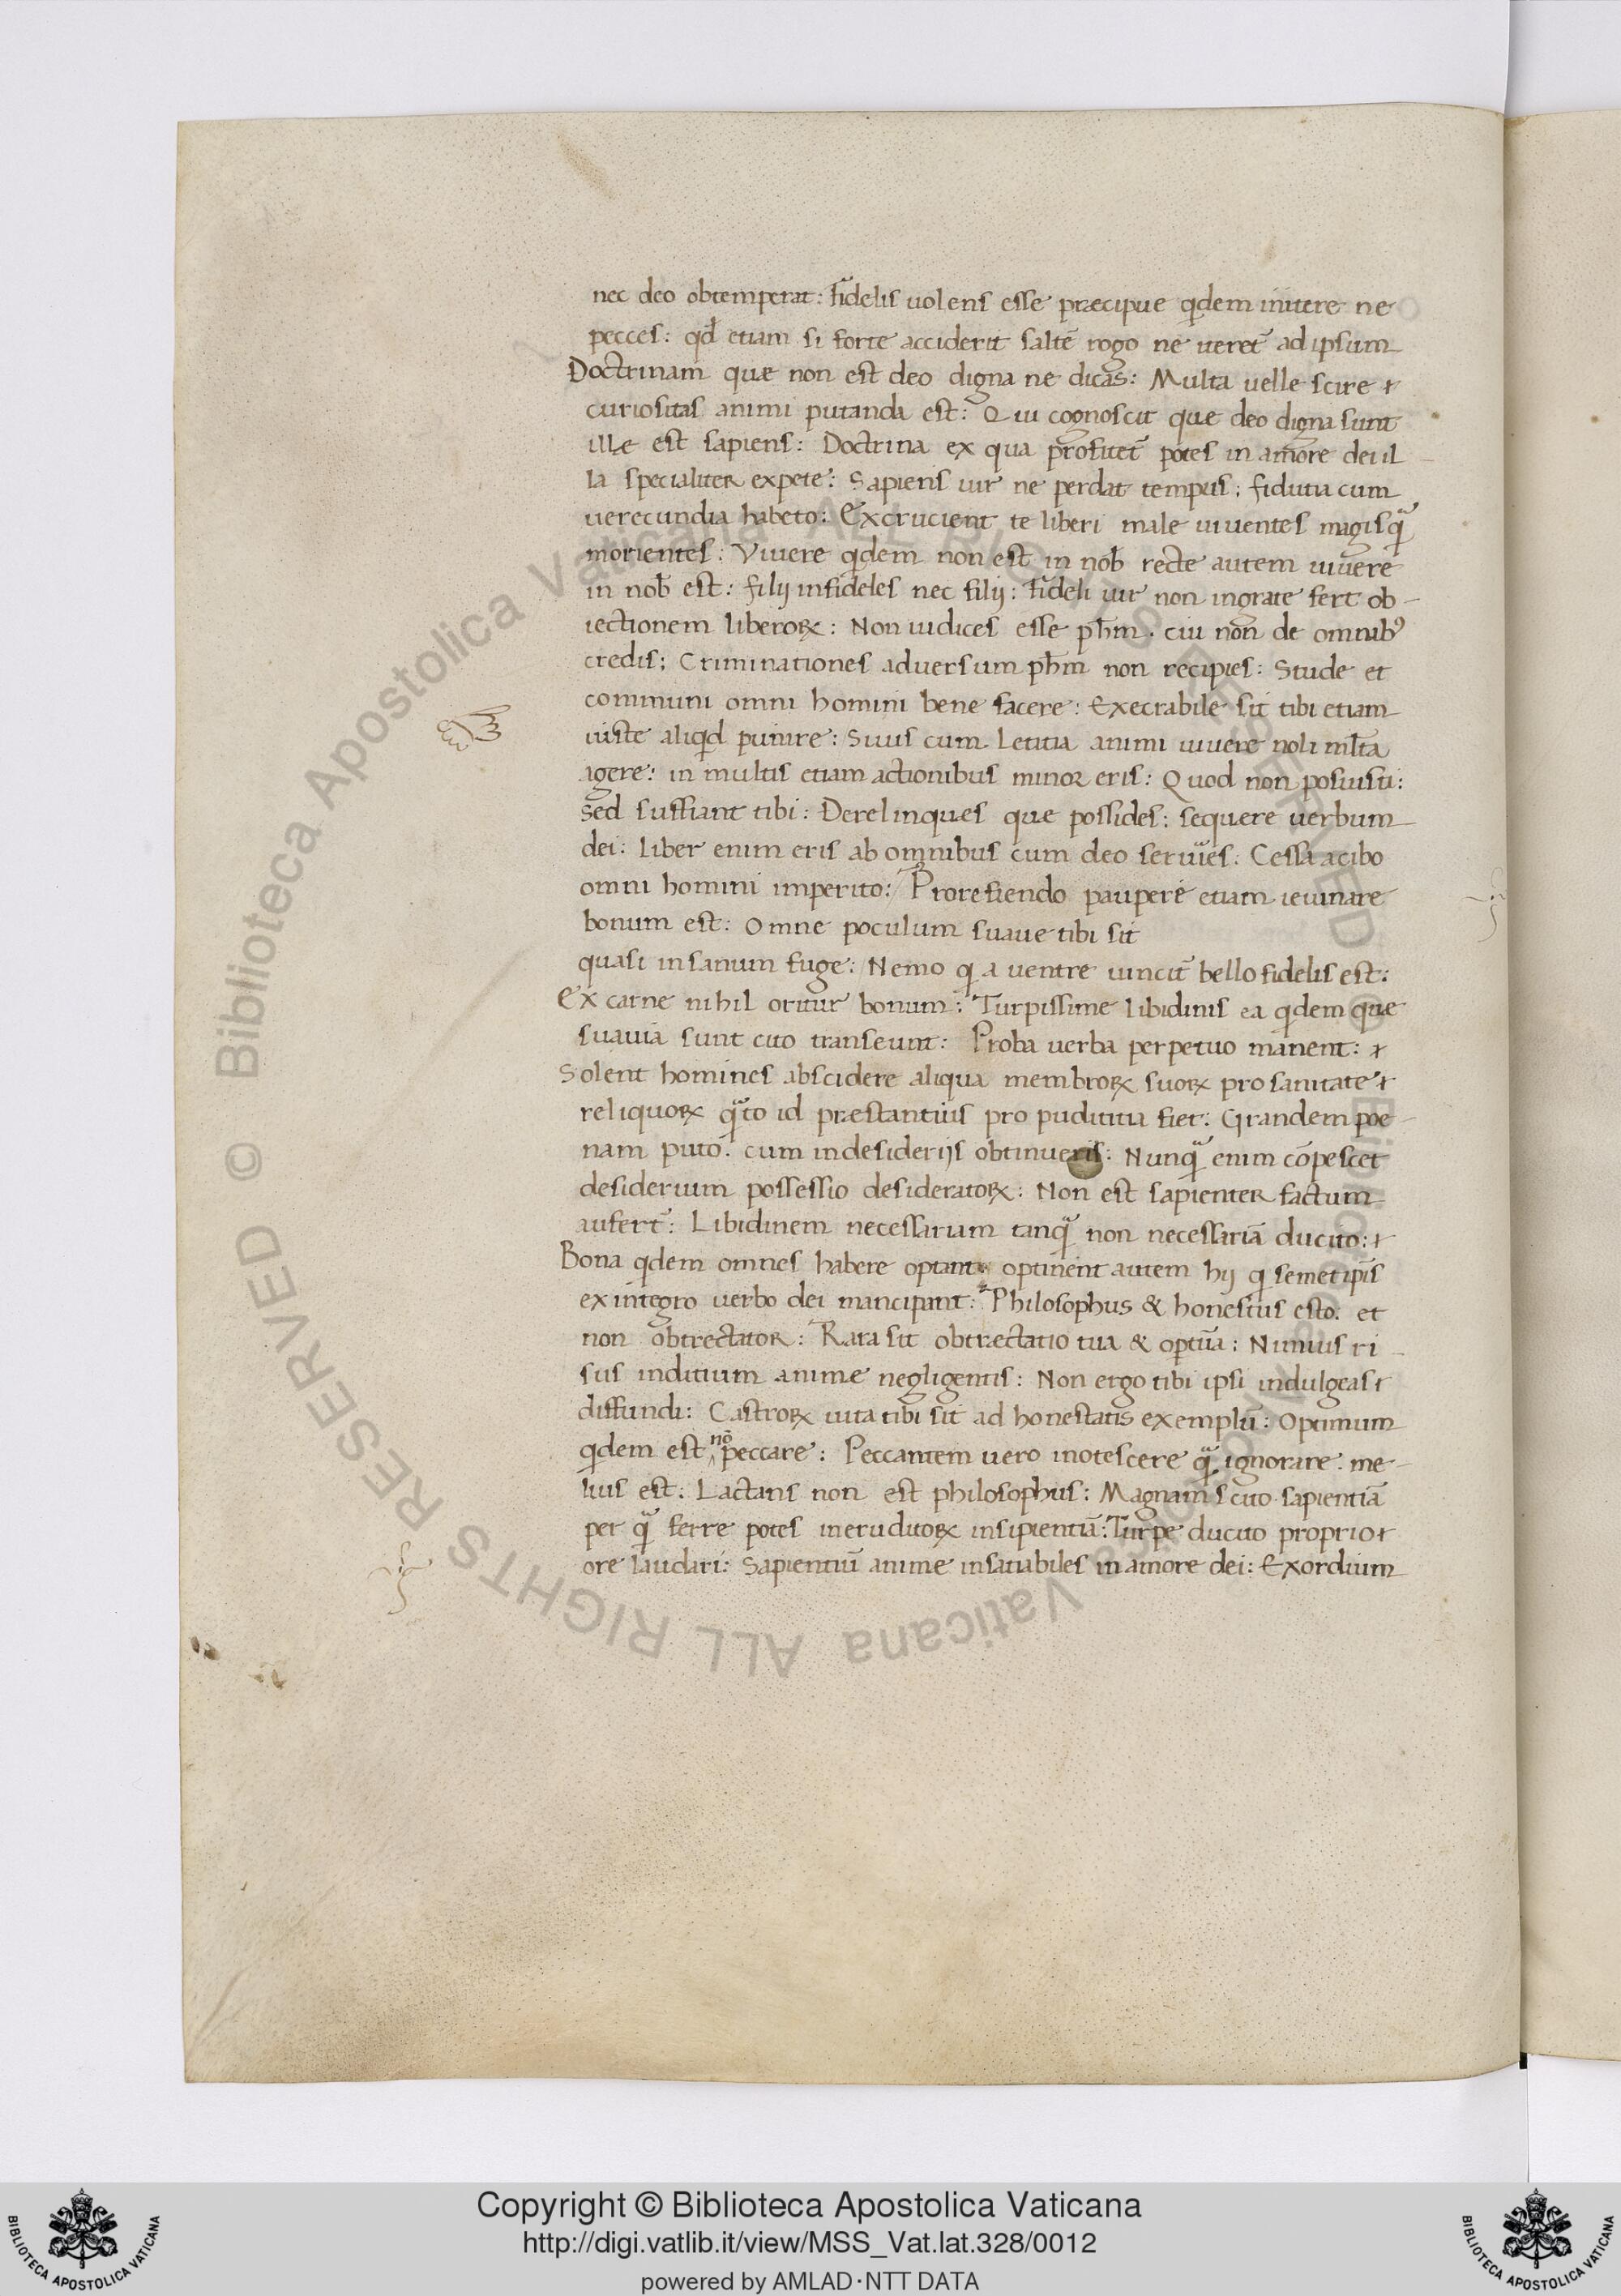 nec deo obtemperat: Fidelis uolens esse præcipue qͥdem initere ne
pecces: qđ etiam si forte acciderit saltē rogo ne ueret̄ ad ipsum
Doctrinam quæ non est deo digna ne dicas: Multa uelle scire
curiositas animi putanda est: Qui cognoscit que deo digna sunt
ille est sapiens: Doctrina ex qua profitet̄ potes in amore dei il
la specialiter expete: Sapiens uir ne perdat tempus: fidutia cum
uerecundia habeto: Excrucient te liberi male uiuentes magis qᷓ
morientes: Viuere qͥdem non est in nob̄ recte autem uiuere
in nob̄ est: filij infideles nec filij: Fideli uir non ingrate fert ob-
iectionem liberoꝝ: Non iudices esse ph̄m. cui non de omnibꝰ
credis: Criminationes aduersum ph̄m non recipies: Stude et
communi omni homini bene facere: Execrabile sit tibi etiam
iuste aliqͥd punire: Siuis cum letitia animi uiuere noli ml̄ta
agere: in multis etiam actionibus minor eris: Quod non posuisti:
sed suffiant tibi: Derelinques que possides: sequere uerbum
dei: liber enim eris ab omnibus cum deo seruies: Cessa a cibo
omni homini imperito: Pro refiendo pauperē etiam ieiunare
bonum est: Omne poculum suaue tibi sit
quasi insanum fuge: Nemo qͥ a uentre uincit̄ bello fidelis est:
Ex carne nihil oritur bonum: Turpissime libidinis ea qͥdem quæ
suauia sunt cito transeunt: Proba uerba perpetuo manent:
Solent homines abscidere aliqua membroꝝ suoꝝ pro sanitate
reliquoꝝ qᷓto id præstantius pro pudititia fiet: Grandem poe-
nam puto. cum in desiderijs obtinueris: Nunqᷓ enim cōpescet
desiderium possessio desideratoꝝ: Non est sapienter factum
aufert̄: Libidinem necessariam tanqᷓ non necessariā ducito:
Bona qͥdem omnes habere optant optinent autem hij qͥ semet ip̄is
ex integro uerbo dei mancipant: Philosophus & honestus esto: et
non obtrectator: Rara sit obtrectatio tua & optīa: Nimius ri-
sus inditium anime negligentis: Non ergo tibi ipsi indulgeas
diffundi: Castroꝝ uita tibi sit ad honestatis exemplū: Optimum
qͥdem est nō peccare: Peccantem uero inotescere qᷓ ignorare. me-
lius est: Lactans non est philosophus: Magnam scito sapientiā
per qᷓ ferre potes ineruditoꝝ insipientiā: Turpe ducito proprio
ore laudari: Sapientiū anime insatiabiles in amore dei: Exordium
© Biblioteca Apostolica Vaticana ALL RIGHTS RESERVED © Biblioteca Apostolica Vaticana ALL RIGHTS RESERVED
Copyright © Biblioteca Apostolica Vaticana
http://digi.vatlib.it/view/MSS_Vat.lat.328/0012
powered by AMLAD·NTT DATA
BIBLIOTECA APOSTOLICA VATICANA
BIBLIOTECA APOSTOLICA VATICANA